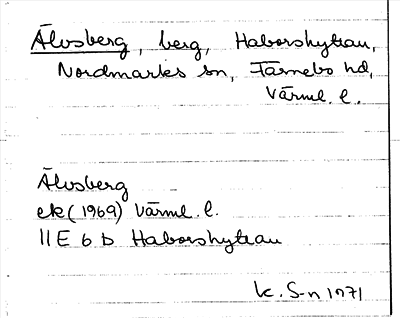 Älvsberg, berg, Haborshyttan,
Nordmarks sn, Färnebo hd,
Värml. l.
Älvsberg
ek (1969) Värml. l.
11E 6b Haborshyttan
K. S-n 1971